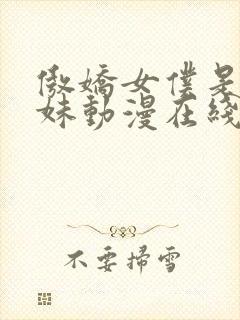 傲嬌女僕是
妹動漫在綫
不要掃雪